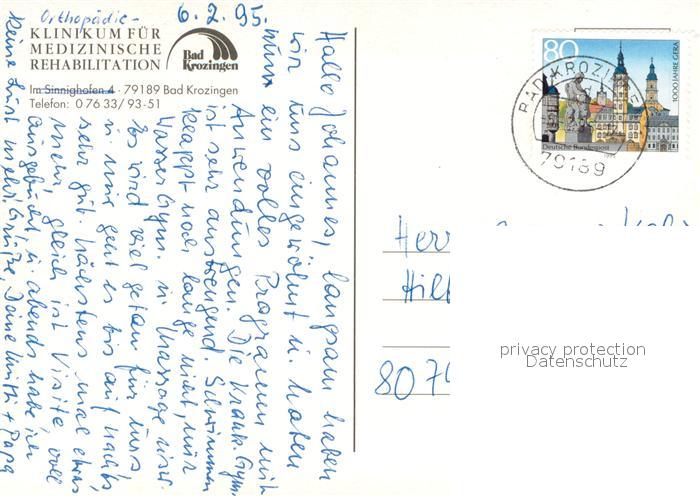 Orthopädie-
KLINIKUM FÜR
MEDIZINISCHE
REHABILITATION
Bad
Krozingen
Im Sinnighofen 4 · 79189 Bad Krozingen
Telefon: 0 76 33/ 93-51
6.2.95.
Hallo Johannes, langsam haben
wir uns eingewöhnt u. haben
nun ein volles Programm mit
Anwendungen. Die Krank.Gym.
ist sehr anstrengend. Schwimmen
klappt noch lange nicht, nur
Wassergym. u. Massage
Es wird viel getan für uns
u. mir geht es bis auf nachts
sehr gut. Nächstens mal etwas
mehr, gleich ist Visite
ausgebucht u. abends habe ich
keine Lust mehr. Grüße, Deine + Papa
80
1000 JAHRE GERA
Deutsche Bundespost
BAD KROZINGEN
79189
Herr
Hilt
807
privacy protection
Datenschutz